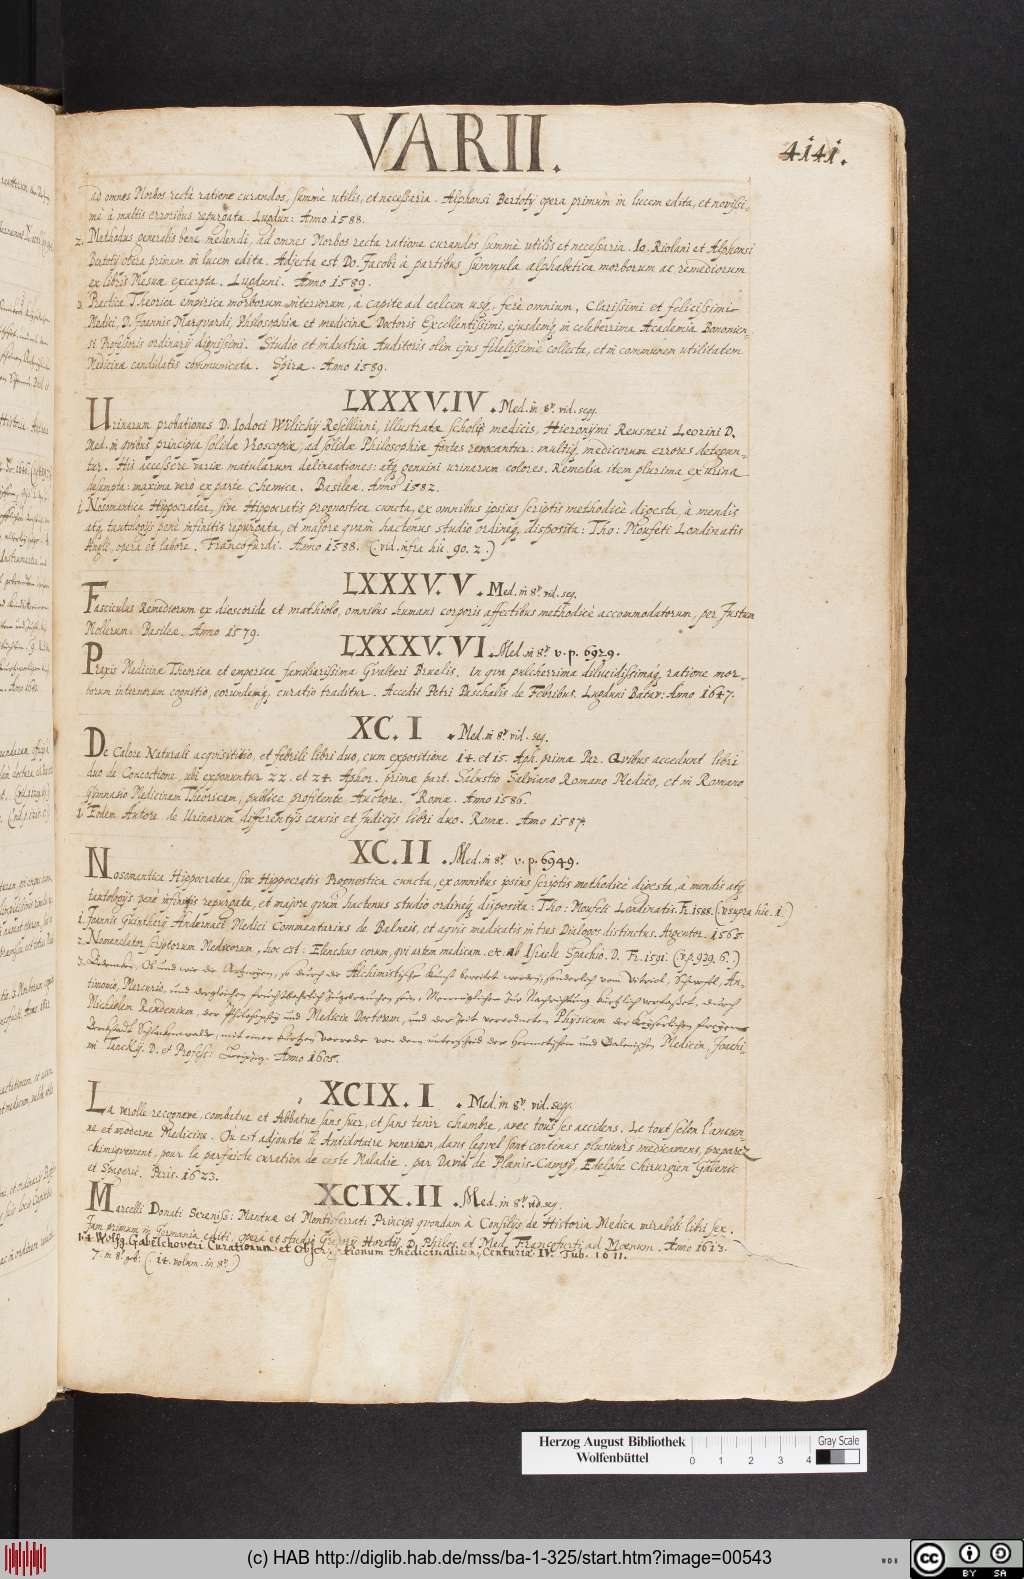 VARII.
4141.
ad omnes Morbos rectà ratione curandos, summè utilis, et necessaria. Alphonsi Bertotij opera primùm in lucem edita, et novissi-
mè à multis erroribus repurgata. Lugdun: Anno 1588.
2. Methodus generalis bene medendi, ad omnes Morbos recta ratione curandos summè utilis et necessaria. Io. Riolani et Alphonsi
Bertotij opera primum in lucem edita. Adjecta est Do. Jacobi à partibus summula alphabetica morborum ac remediorum
ex libris Mesuæ excerpta. Lugduni. Anno 1589.
3. Practica Theorica empirica morborum interiorum, à capite ad calcem usq, ferè omnium, Clarissimi et felicissimi
Medici, D. Joannis Marquardi, Philosophiæ et medicinæ Doctoris Excellentissimi, ejusdemq in celeberrima Academia Bononien-
si Professoris ordinarij dignissimi. Studio et industria Auditoris olim ejus fidelissimè collecta, et in communem utilitatem
Medicinæ candidatis communicata. Spiræ. Anno 1589.
LXXXV.IV. Med. in 8º. vid. seq.
Urinarum probationes D. Iodoci Wilichij Reselliani, illustratæ scholijs medicis, Hieronymi Reusneri Leorini D.
Med. in quibus principia solidæ Uroscopiæ, ad solidæ Philosophiæ fontes revocantur: multiq, medicorum errores detegun-
tur. His accessere variæ matularum delineationes: atq genuini urinarum colores. Remedia item plurima ex urina
desumpta: maxima vero ex parte chemica. Basileæ. Anno 1582.
1. Nosomantica Hippocratea, sive Hippocratis prognostica cuncta, ex omnibus ipsius scriptis methodicè digesta, à mendis
atq tautologijs penè infinitis repurgata, et majore quam hactenus studio ordineq, disposita: Tho: Moufeti Londinatis
Angli, opera et labore, Francofurdi. Anno 1588. (vid. infra hic. 90. 2.)
LXXXV.V. Med. in 8º. vid. seq.
Fasciculus Remediorum ex dioscoride et mathiolo, omnibus humani corporis affectibus methodicè accommodatorum, per Justum
Mollerum. Basileæ. Anno 1579.
LXXXV.VI. Med. in 8º v. p. 6929.
Praxis Medicinæ Theorica et emperica familiarissima Gualteri Bruelis. In qua pulcherrima dilucidissimaq, ratione mor-
borum internorum cognitio, eorundemq, curatio traditur. Accedit Petri Paschalis de Febribus. Lugduni Batav: Anno 1647.
XC. I. Med. in 8º. vid. seq.
De Calore Naturali acquisititio, et febrili libri duo, cum expositione 14. et 15. Aph. primæ Par. Quibus accedunt libri
duo de Concoctione, ubi exponuntur 22. et 24. Aphor. primæ part. Salustio Salviano Romano Medico, et in Romano
Gymnasio Medicinam Theoricam, publice profitente Auctore. Romæ. Anno 1586.
1. Eodem Autore de Urinarum differentijs causis et Judicijs libri duo. Romæ. Anno 1587.
XC. II. Med. in 8º. v. p. 6949.
Nosomantica Hippocratea, sive Hippocratis Prognostica cuncta, ex omnibus ipsius scriptis methodicè digesta, à mendis atq
tautologijs penè infinitis repurgata, et majore quàm hactenus studio ordineq, disposita: Tho: Moufeti Londinatis. Fr. 1588. (v. supra hic. 1.)
1. Joannis Guintherij Andernaci Medici Commentarius de Balneis, et aquis medicatis in tres Dialogos distinctus. Argentor. 1565.
2. Nomenclator scriptorum Medicorum, hoc est: Elenchus eorum, qui artem medicam. etc. ab Israele Spachio. D. Fr. 1591. (v. p. 939. 6.)
3. Bedencken, Ob und wie die Artzneyen, so durch die Alchimistische Kunst bereitet werden, sonderlich vom Vitriol, Schwefel, An-
timonio, Mercurio, und dergleichen
Michaelem Reudenium, der Philosophij und Medicin Doctorem, und der Zeit verordneten Physicum der Keyserlichen freyen
Berckstadt Schlackenwalde, mit einer kurtzen Vorrede von dem unterscheid der Hermetischen und Galenischen Medicin, Joachi-
mi Tanckij. D. et Profess: Leipzig. Anno 1605.
XCIX. I. Med. in 8º. vid. seq.
La verolle recogneue, combatue et Abbatue sans suer, et sans tenir chambre, avec tous ses accidens. Le tout selon l'ancien-
ne et moderne Medicine. Ou est adjousté le Antidotaire venerien, dans lequel sont contenus plusieurs medicamens, preparez
chimiquement, pour la parfaicte curation de ceste Maladie. par David de Planis-Campy, Edelphe Chirurgien Galenic
et Spageric. Paris. 1623.
XCIX. II. Med. in 8º. vid. seq.
Marcelli Donati Sereniss: Mantuæ et Montisferrati Principi quondam à Consilijs de Historia Medica mirabili libri sex.
Jam primum in Germania editi, opera et studio Gregorij Horstij, D. Philos. et Med. Francofurti ad Moenum. Anno 1613.
1-4. Wolfg. Gabelchoveri Curationum et Observationum Medicinalium, Centuriæ IV. Tub. 1611.
7. in 8º geb. (. 14. volum. in 8º.)
Herzog August Bibliothek
Wolfenbüttel
0 1 2 3 4
Gray Scale
(c) HAB http://diglib.hab.de/mss/ba-1-325/start.htm?image=00543
WDB
cc BY SA